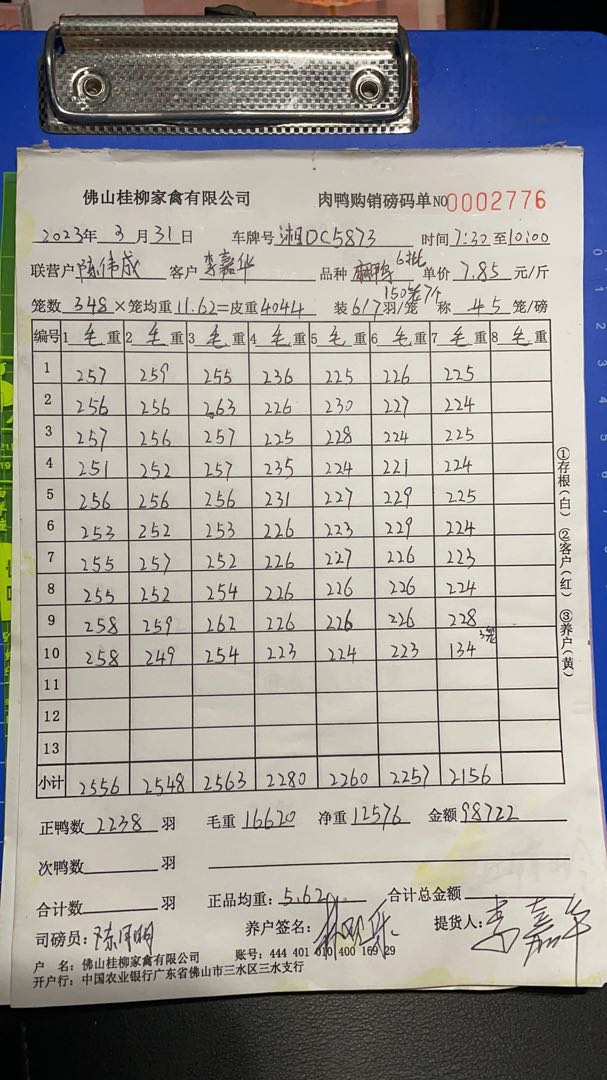 佛山桂柳家禽有限公司 肉鸭购销磅码单 NO 0002776
2023年 3月31日 车牌号 湘DC5873 时间 7:30 至 10:00
联营户 陈伟成 客户 李嘉华 品种 麻鸭 6批 单价 7.85 元/斤
150笼7个
笼数 348 ×笼均重 11.62=皮重 4044 装 6/7 羽/笼 称 45 笼/磅
编号 1 毛重 2 毛重 3 毛重 4 毛重 5 毛重 6 毛重 7 毛重 8 毛重
1 257 259 255 236 225 226 225
2 256 256 263 226 230 227 224
3 257 256 257 225 228 224 225
4 251 252 257 235 224 221 224
5 256 256 256 231 227 229 225
6 253 252 253 226 223 229 224
7 255 257 252 226 227 226 223
8 255 252 254 226 226 226 224
9 258 259 262 226 226 226 228
3笼
10 258 249 254 223 224 223 134
11
12
13
小计 2556 2548 2563 2280 2260 2257 2156
①存根(白) ②客户(红) ③养户(黄)
正鸭数 2238 羽 毛重 16620 净重 12576 金额 98722
次鸭数 羽
合计数 羽 正品均重: 5.620 合计总金额
司磅员: 养户签名: 提货人: 李嘉华
户 名: 佛山桂柳家禽有限公司 账号: 444 401 010 400 169 29
开户行: 中国农业银行广东省佛山市三水区三水支行